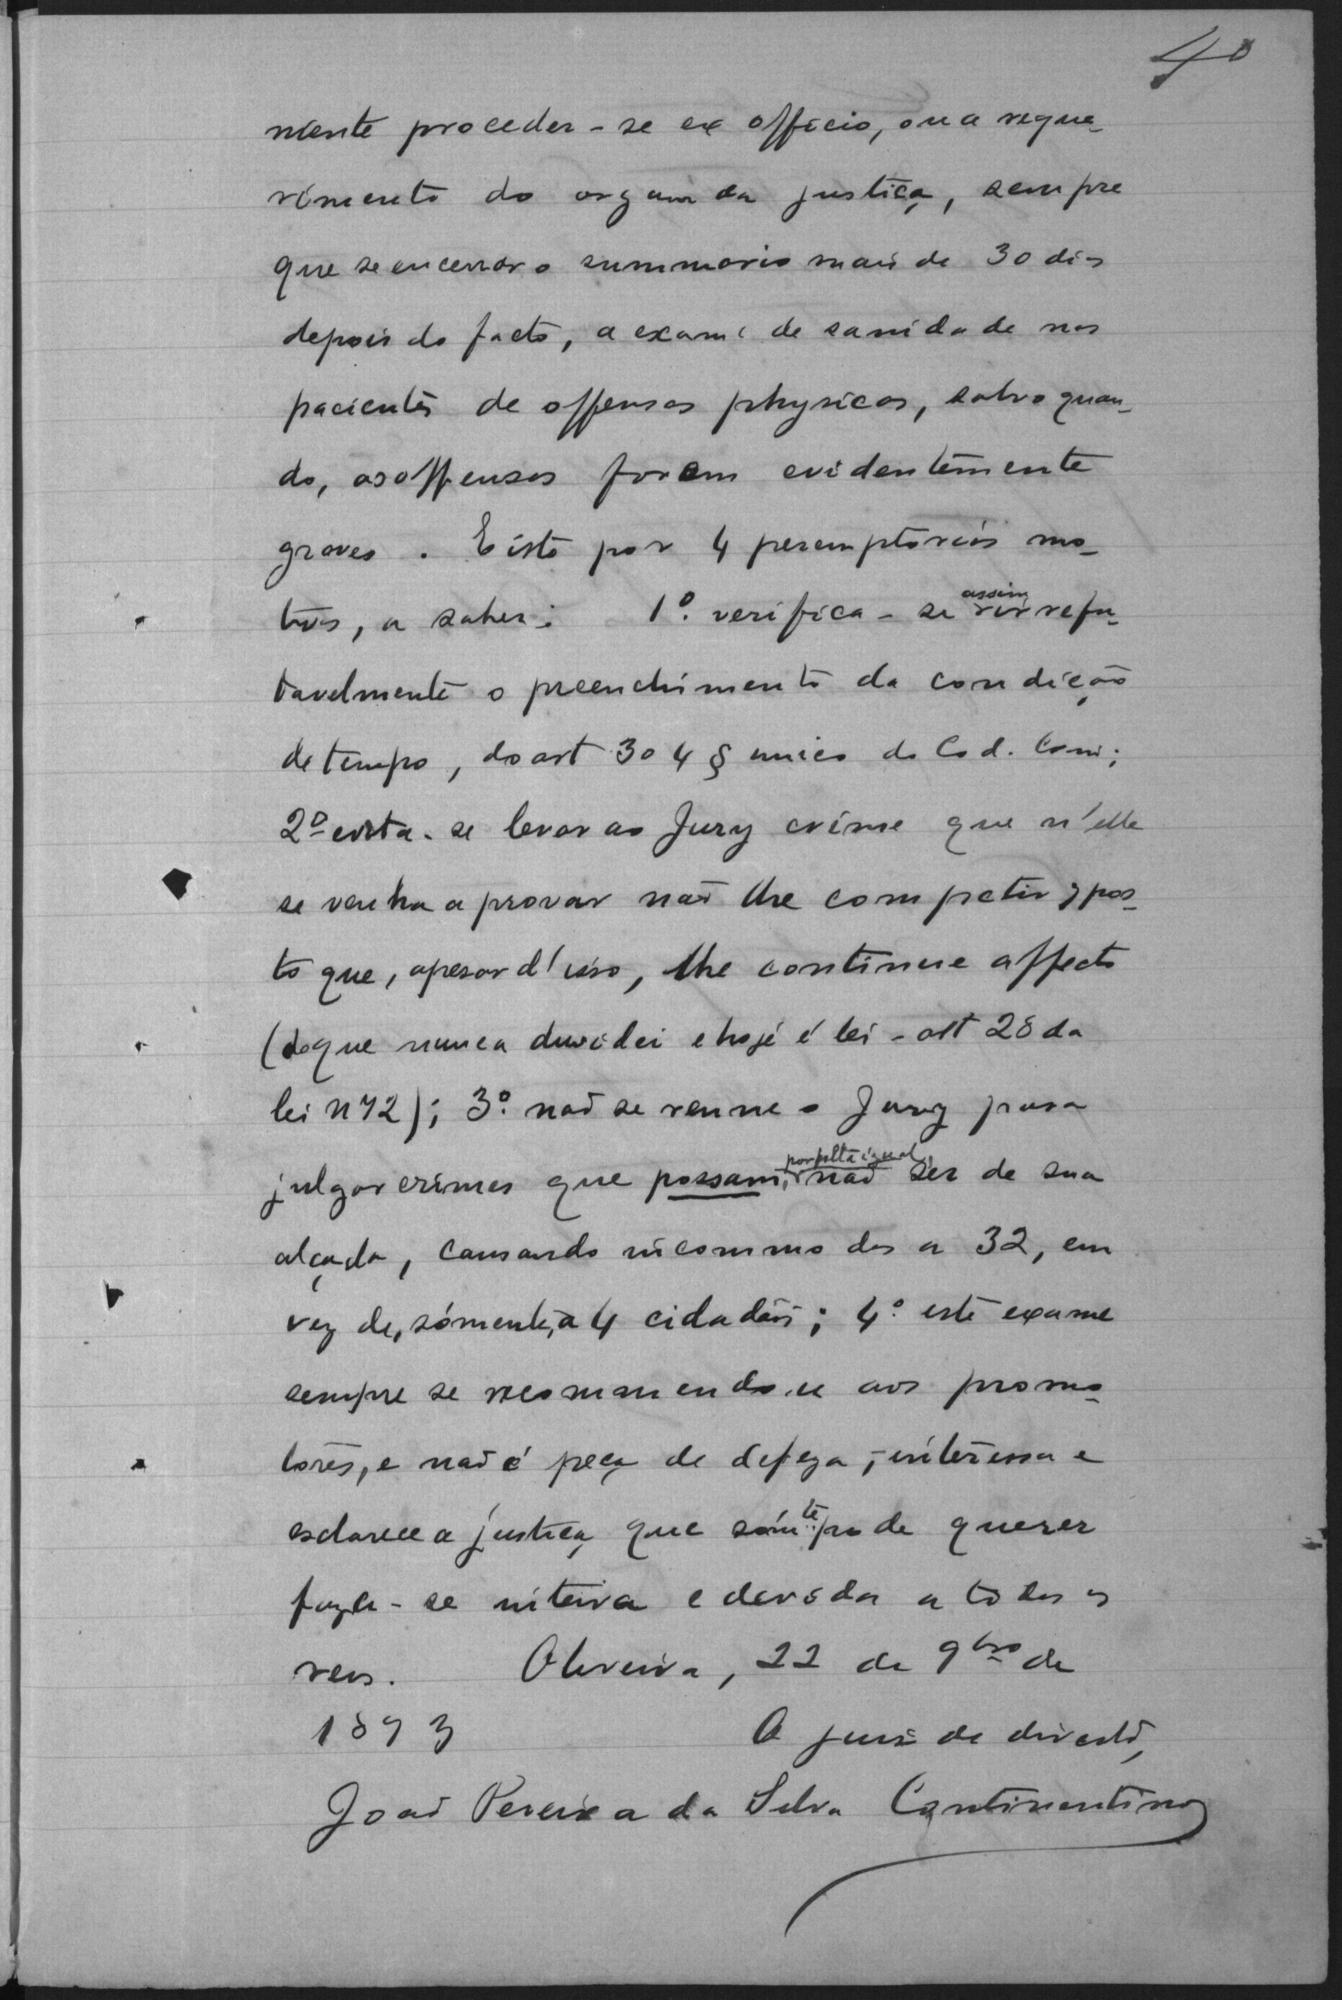 40
mente proceder-se ex officio, ou a reque-
rimento do orgam da justiça, sempre
que se encerrar o summario mais de 30 dias
depois do facto, a exame de sanidade nos
pacientes de offensas physicas, salvo quan-
do, as offensas forem evidentemente
graves. E isto por 4 peremptorios mo-
tivos, a saber: 1º. verifica-se assim irrefu-
tavelmente o preenchimento da condicção
de tempo, do art 304 § unico do Cod. Crim;
2º evita-se levar ao Jury crime que n'elle
se venha a provar naõ lhe competir, pos-
to que, apesar d'isso, lhe continue affecto
(do que nunca duvidei e hoje é lei - art 28 da
lei n 72); 3º. naõ se reune o Jury para
julgar crimes que possam, por falta igual, naõ ser de sua
alçada, causando incommodos a 32, em
vez de, sómente, a 4 cidadãos; 4º. este exame
sempre se recommendou aos promo-
tores, e naõ é peça de defeza; interessa e
esclarece a justiça, que sómte pode querer
fazer-se inteira e devida a todos os
reus. Oliveira, 22 de 9bro de
1893 O juiz de direito,
Joaõ Pereira da Silva Continentino